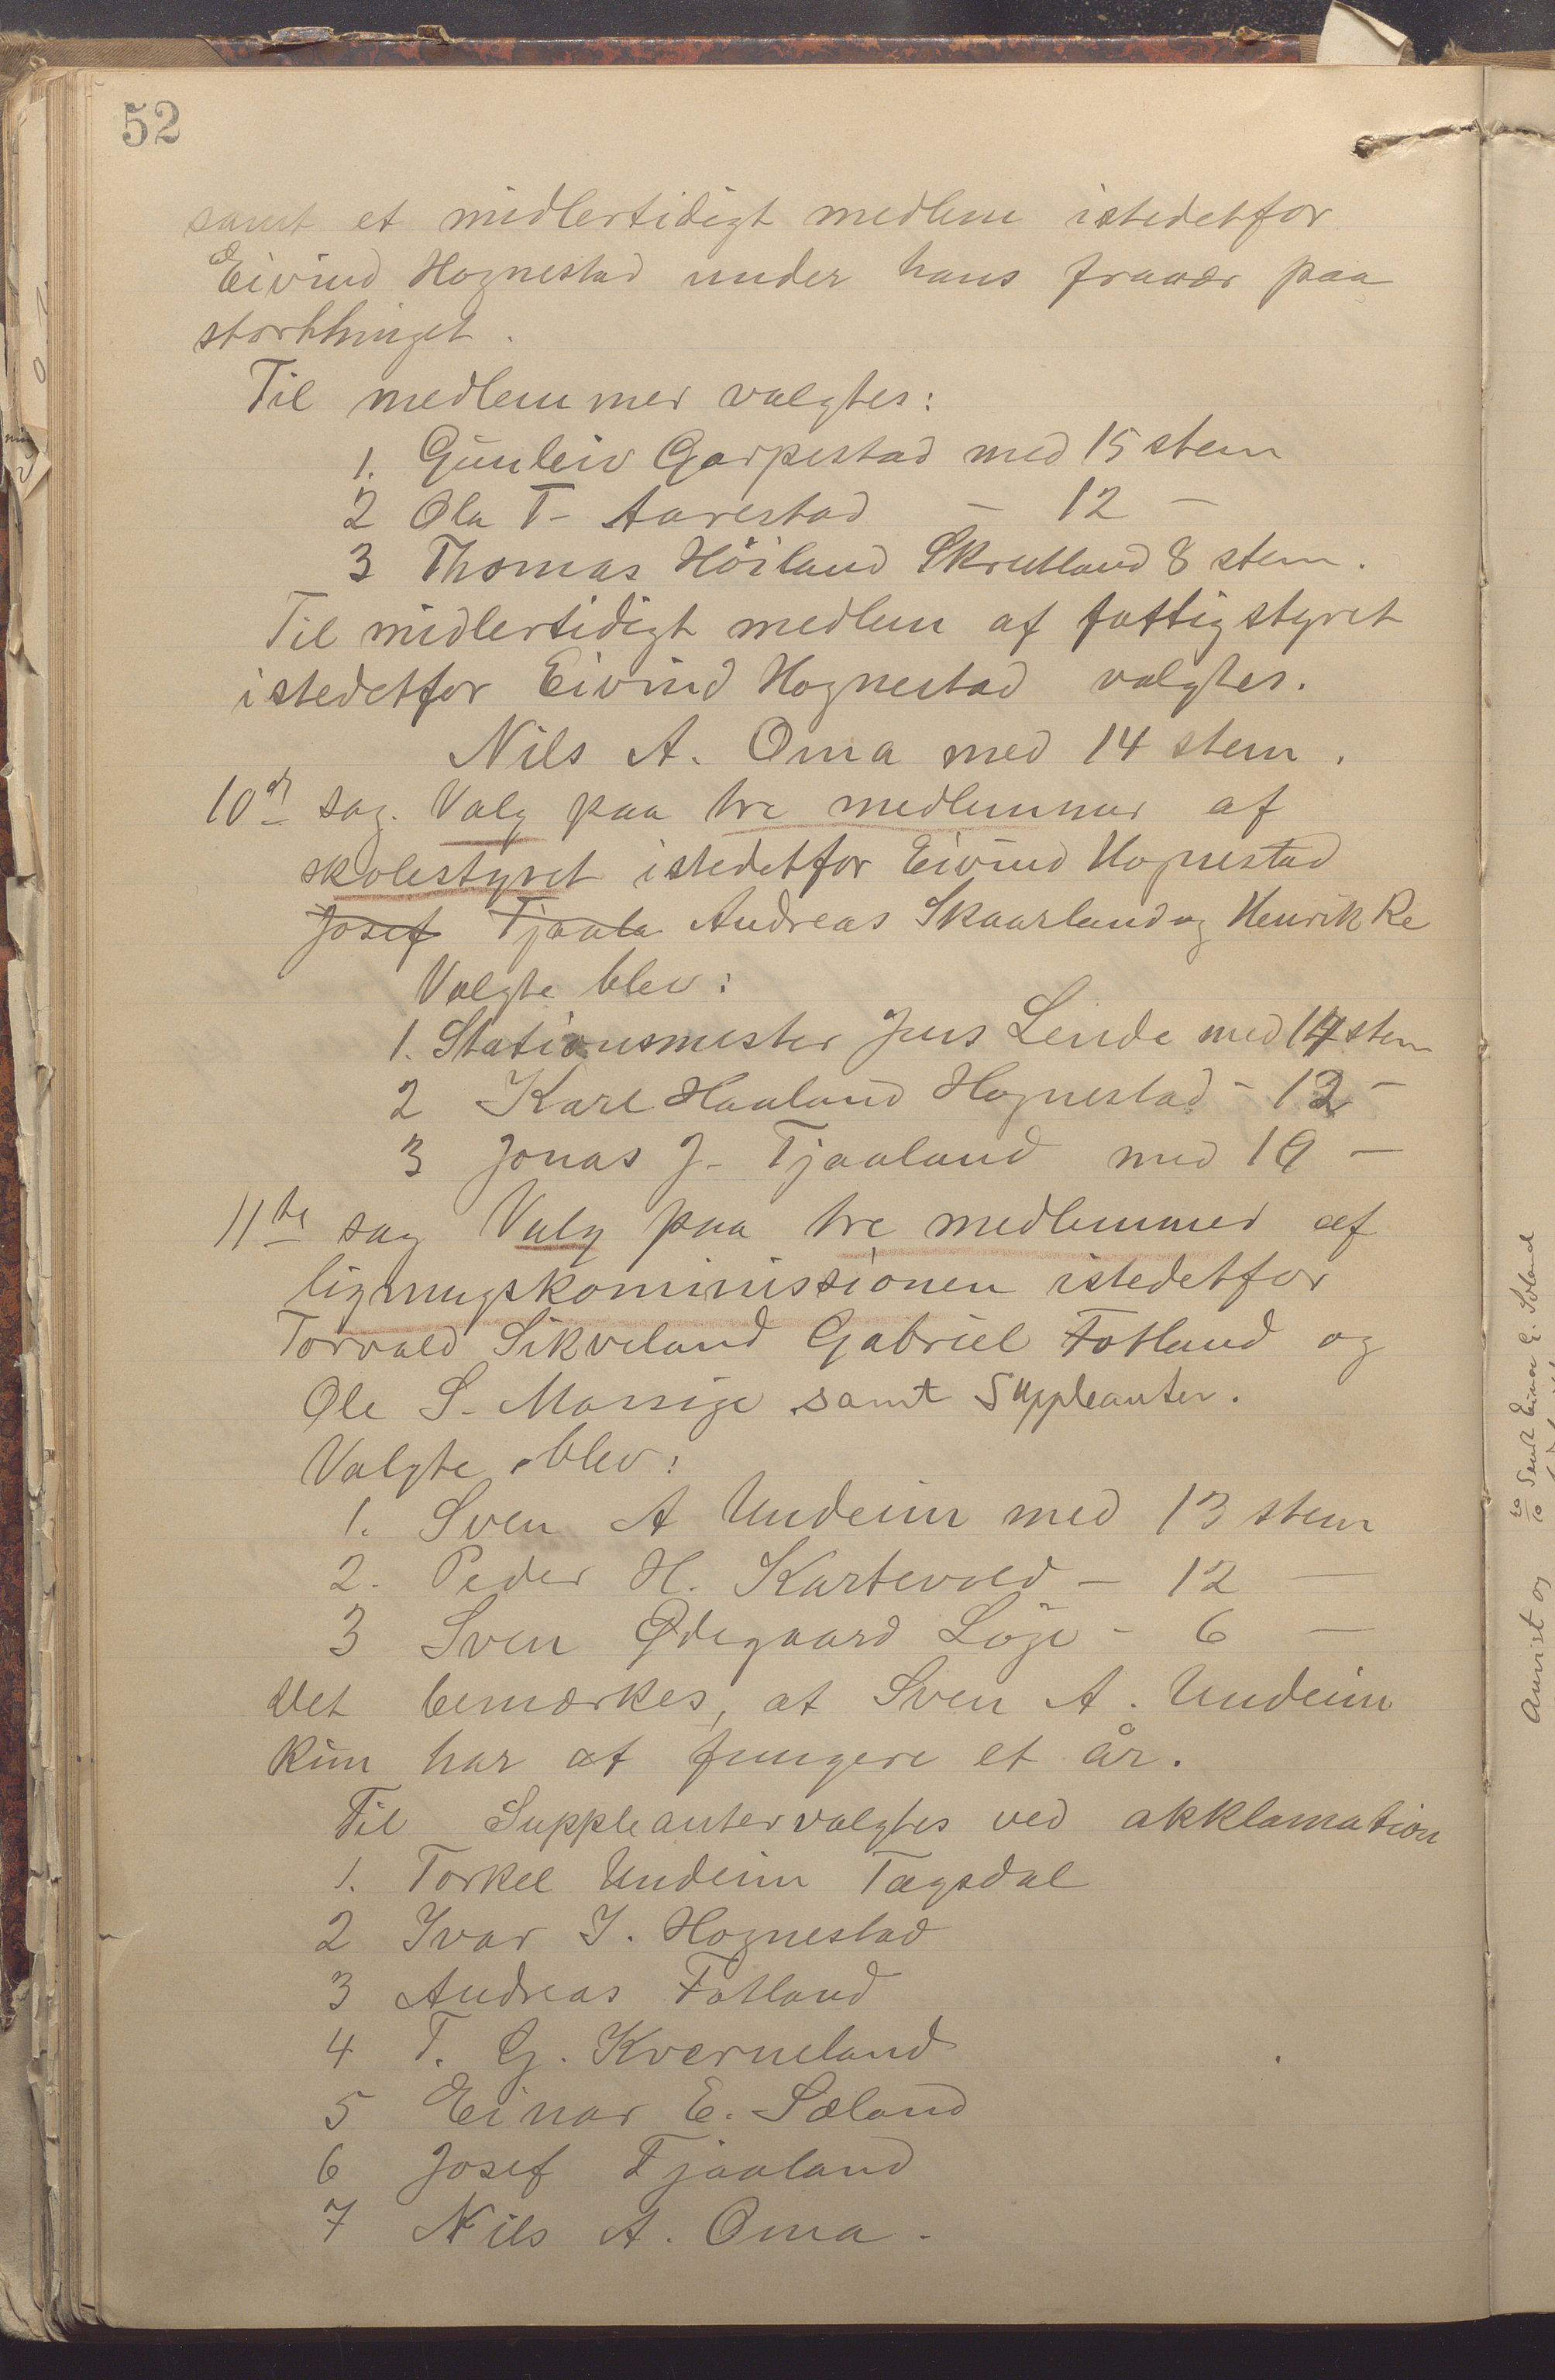 52
samt et midlertidigt medlem istedetfor
Eivind Hognestad under hans fravær paa
storthinget.
Til medlemmer valgtes:
1. Gunleiv Garpestad med 15 stem
2 Ola T. Aarestad — 12 —
3 Thomas Höiland Skrutland 8 stem.
Til midlertidigt medlem af fattigstyret
istedetfor Eivind Hognestad valgtes.
Nils A. Oma med 14 stem.
10de sag. Valg paa tre medlemmer af
skolestyret istedetfor Eivind Hognestad
Josef Tjaala Andreas Skaarland og Henrik Re
Valgte blev:
1. Stationsmester Jens Lende med 14 stem
2 Karl Haaland Hognestad - 12 -
3 Jonas J. Tjaaland med 19 —
11te sag Valg paa tre medlemmer af
ligningskommissionen istedetfor
Torvald Sikveland Gabriel Fotland og
Ole S. Mossige samt Suppleanter.
Valgte blev:
1. Sven A Undeim med 13 stem
2. Peder H. Kartevold — 12 —
3 Sven Ødegaard Löge - 6 —
Det bemærkes, at Sven A. Undeim
kun har at fungere et år.
Til Suppleanter valgtes ved akklamation
1. Torkel Undeim Tægsdal
2 Ivar I. Hognestad
3 Andreas Fotland
4 T. G. Kverneland
5 Einar E. Sæland
6 Josef Tjaaland
7 Nils A. Oma.